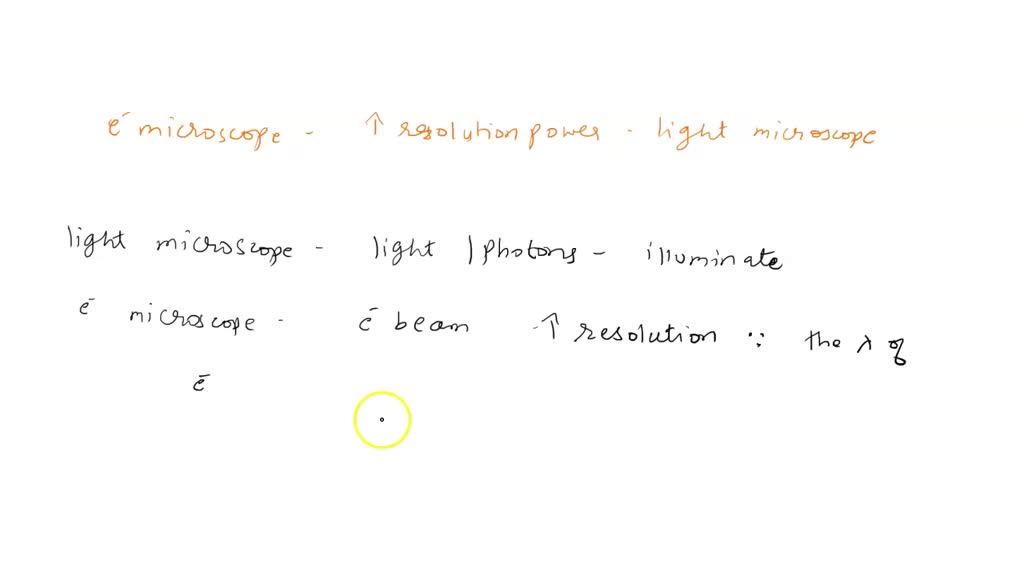 ē microscope - ↑ resolution power - light microscope
light microscope - light / photons - illuminate
ē microscope - ē beam - ↑ resolution ∵ the λ of
ē